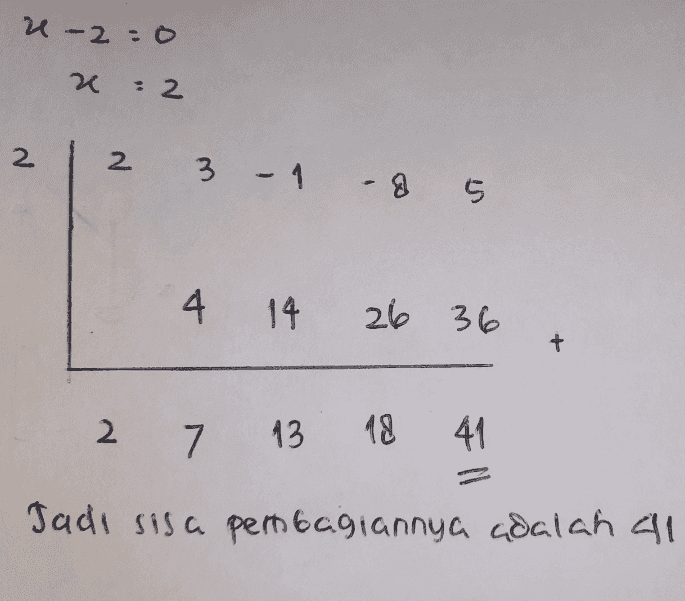 x - 2 = 0
x = 2
2 | 2 3 -1 -8 5
4 14 26 36 +
2 7 13 18 41
Jadi sisa pembagiannya adalah 41